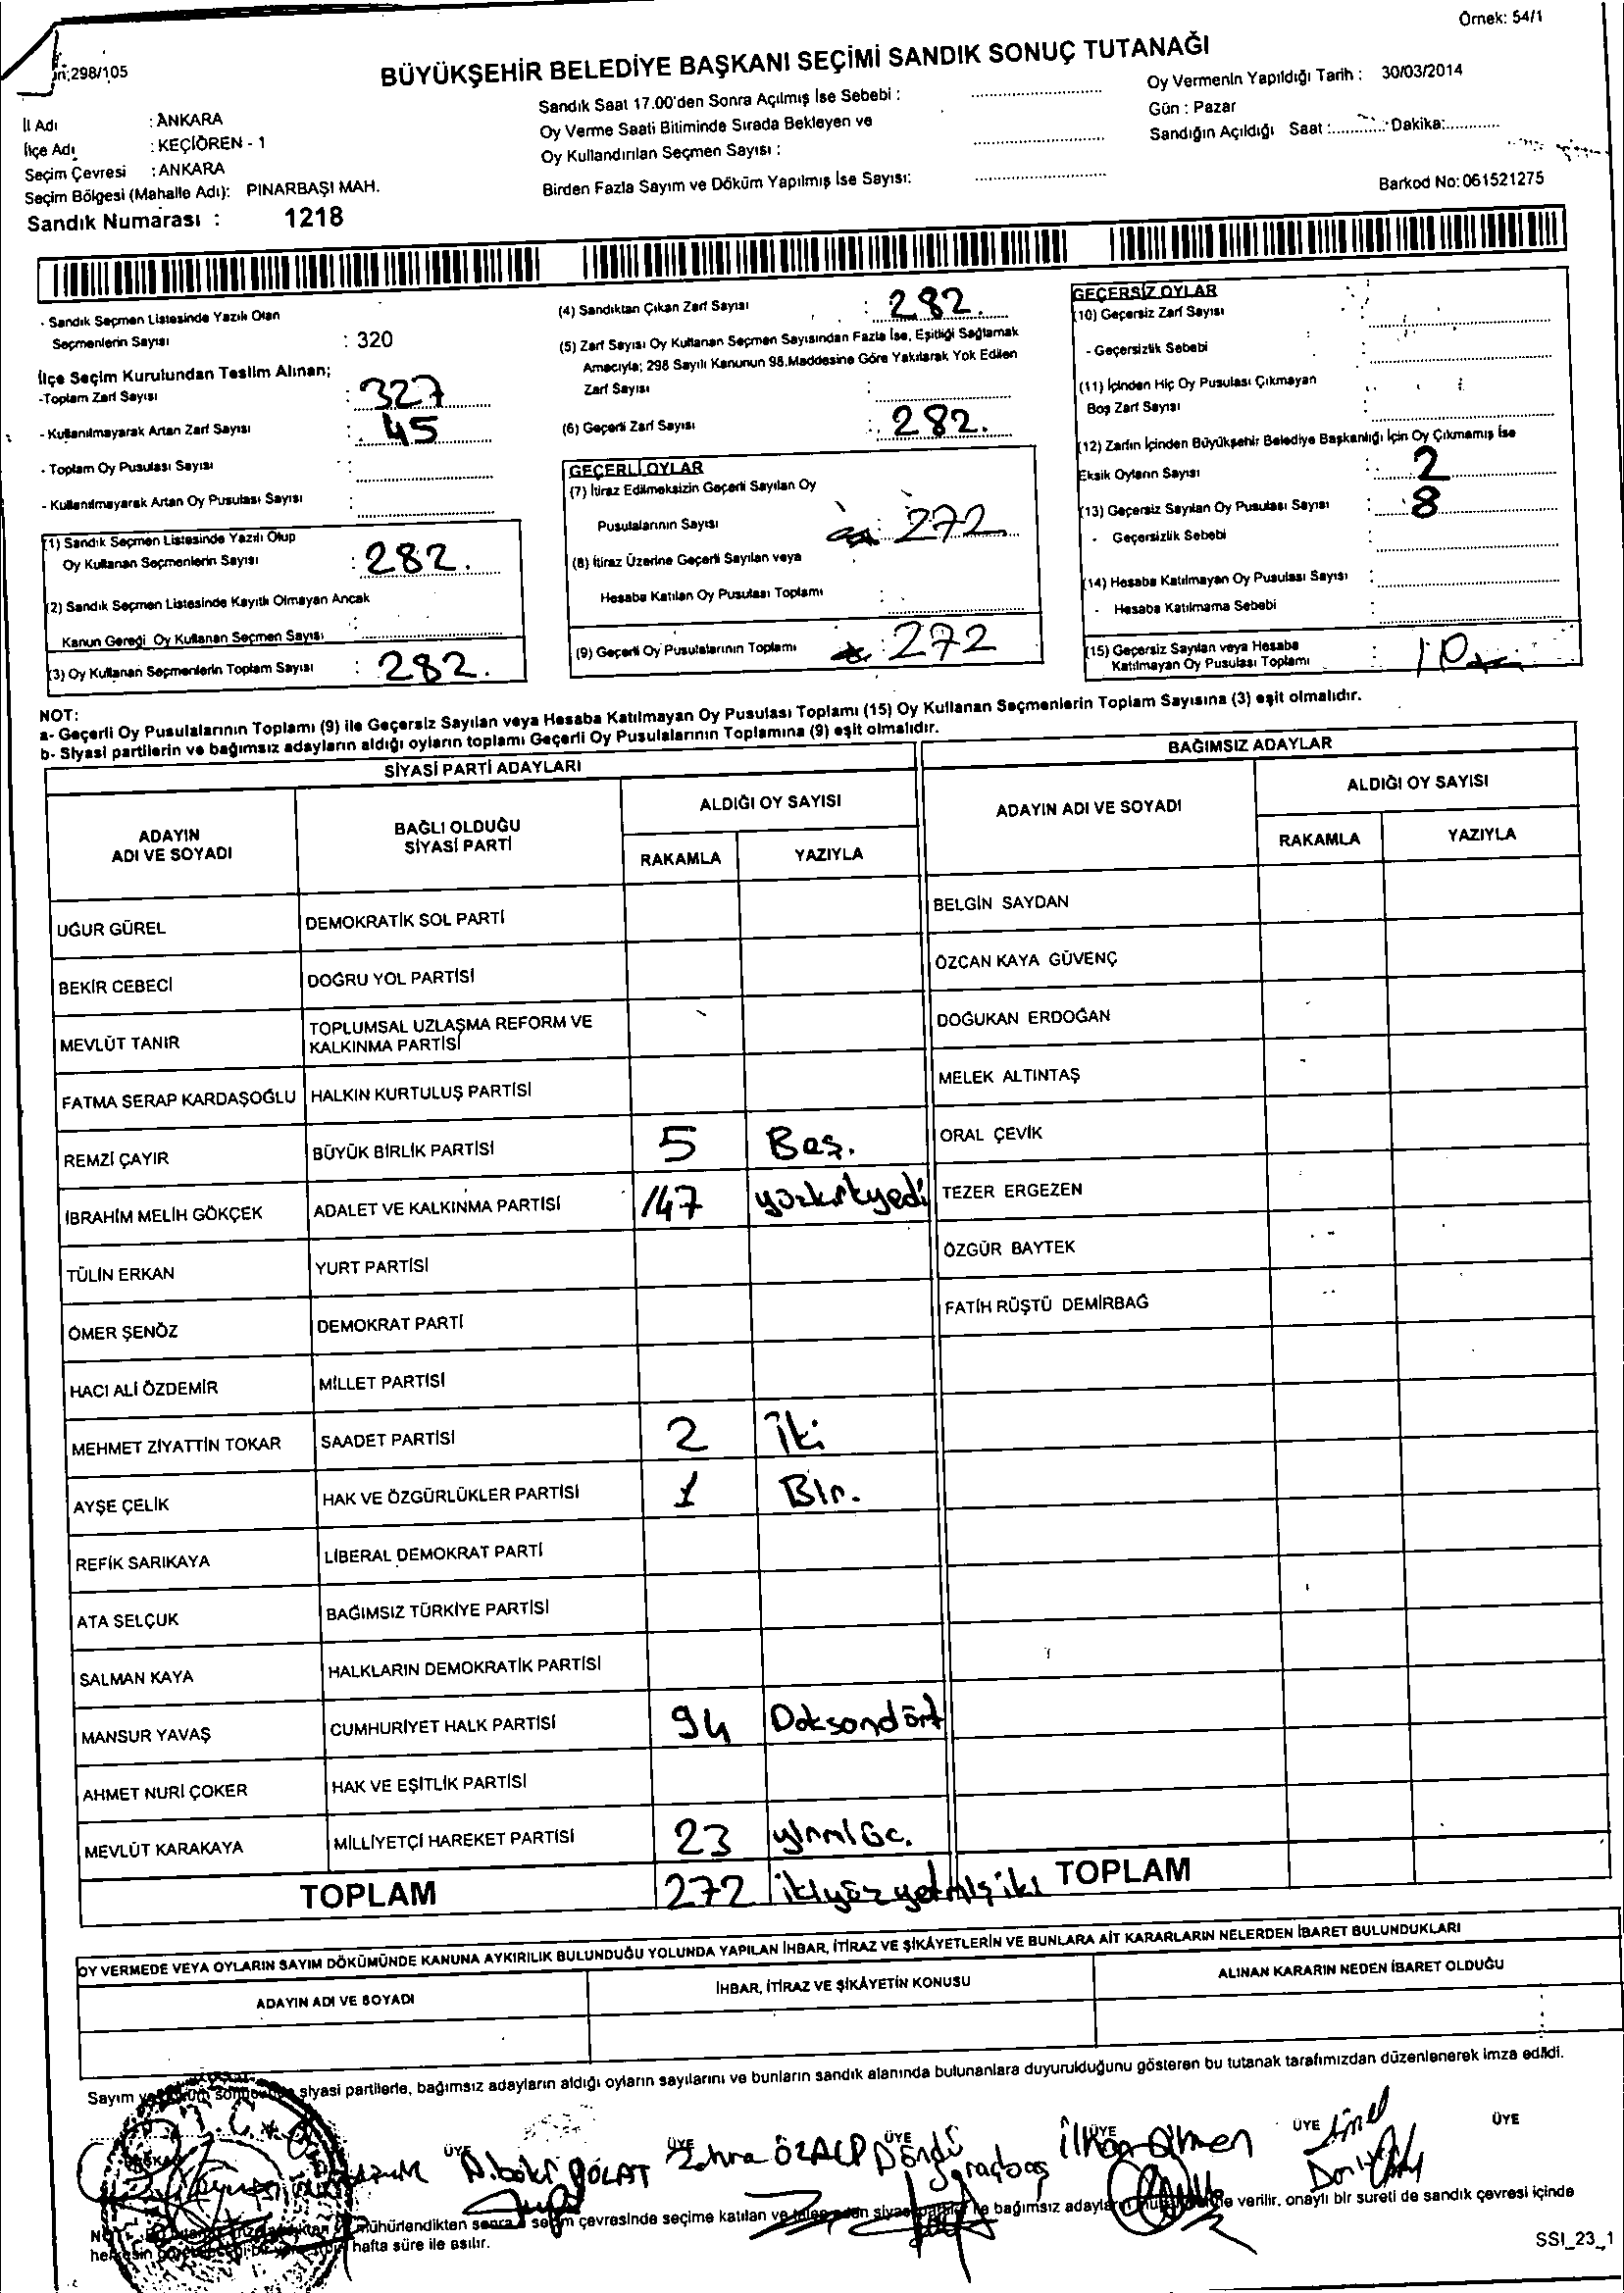 Örnek: 54/1
298/105
BÜYÜKŞEHİR BELEDİYE BAŞKANI SEÇİMİ SANDIK SONUÇ TUTANAĞI
İl Adı : ANKARA
İlçe Adı : KEÇİÖREN - 1
Seçim Çevresi : ANKARA
Seçim Bölgesi (Mahalle Adı): PINARBAŞI MAH.
Sandık Numarası : 1218
Sandık Saat 17.00'den Sonra Açılmış İse Sebebi :
Oy Verme Saati Bitiminde Sırada Bekleyen ve
Oy Kullandırılan Seçmen Sayısı :
Birden Fazla Sayım ve Döküm Yapılmış İse Sayısı:
Oy Vermenin Yapıldığı Tarih : 30/03/2014
Gün : Pazar
Sandığın Açıldığı Saat :............ Dakika:............
Barkod No: 061521275
- Sandık Seçmen Listesinde Yazılı Olan
Seçmenlerin Sayısı : 320
İlçe Seçim Kurulundan Teslim Alınan;
-Toplam Zarf Sayısı : 327
- Kullanılmayarak Artan Zarf Sayısı : 45
- Toplam Oy Pusulası Sayısı :
- Kullanılmayarak Artan Oy Pusulası Sayısı :
(1) Sandık Seçmen Listesinde Yazılı Olup
Oy Kullanan Seçmenlerin Sayısı : 282.
(2) Sandık Seçmen Listesinde Kayıtlı Olmayan Ancak
Kanun Gereği Oy Kullanan Seçmen Sayısı :
(3) Oy Kullanan Seçmenlerin Toplam Sayısı : 282.
(4) Sandıktan Çıkan Zarf Sayısı : 282.
(5) Zarf Sayısı Oy Kullanan Seçmen Sayısından Fazla İse, Eşitliği Sağlamak
Amacıyla; 298 Sayılı Kanunun 98.Maddesine Göre Yakılarak Yok Edilen
Zarf Sayısı :
(6) Geçerli Zarf Sayısı : 282.
GEÇERLİ OYLAR
(7) İtiraz Edilmeksizin Geçerli Sayılan Oy
Pusulalarının Sayısı : 272
(8) İtiraz Üzerine Geçerli Sayılan veya
Hesaba Katılan Oy Pusulası Toplamı :
(9) Geçerli Oy Pusulalarının Toplamı : 272
GEÇERSİZ OYLAR
(10) Geçersiz Zarf Sayısı :
- Geçersizlik Sebebi
(11) İçinden Hiç Oy Pusulası Çıkmayan
Boş Zarf Sayısı :
(12) Zarfın İçinden Büyükşehir Belediye Başkanlığı İçin Oy Çıkmamış İse
Eksik Oyların Sayısı : 2
(13) Geçersiz Sayılan Oy Pusulası Sayısı : 8
- Geçersizlik Sebebi :
(14) Hesaba Katılmayan Oy Pusulası Sayısı :
- Hesaba Katılmama Sebebi :
(15) Geçersiz Sayılan veya Hesaba
Katılmayan Oy Pusulası Toplamı : 10
NOT:
a- Geçerli Oy Pusulalarının Toplamı (9) ile Geçersiz Sayılan veya Hesaba Katılmayan Oy Pusulası Toplamı (15) Oy Kullanan Seçmenlerin Toplam Sayısına (3) eşit olmalıdır.
b- Siyasi partilerin ve bağımsız adayların aldığı oyların toplamı Geçerli Oy Pusulalarının Toplamına (9) eşit olmalıdır.
SİYASİ PARTİ ADAYLARI
ADAYIN ADI VE SOYADI
BAĞLI OLDUĞU SİYASİ PARTİ
ALDIĞI OY SAYISI
RAKAMLA YAZIYLA
UĞUR GÜREL DEMOKRATİK SOL PARTİ
BEKİR CEBECİ DOĞRU YOL PARTİSİ
MEVLÜT TANIR TOPLUMSAL UZLAŞMA REFORM VE KALKINMA PARTİSİ
FATMA SERAP KARDAŞOĞLU HALKIN KURTULUŞ PARTİSİ
REMZİ ÇAYIR BÜYÜK BİRLİK PARTİSİ 5 Beş.
İBRAHİM MELİH GÖKÇEK ADALET VE KALKINMA PARTİSİ 147 yüzkırkyedi
TÜLİN ERKAN YURT PARTİSİ
ÖMER ŞENÖZ DEMOKRAT PARTİ
HACI ALİ ÖZDEMİR MİLLET PARTİSİ
MEHMET ZİYATTİN TOKAR SAADET PARTİSİ 2 İki
AYŞE ÇELİK HAK VE ÖZGÜRLÜKLER PARTİSİ 1 Bir.
REFİK SARIKAYA LİBERAL DEMOKRAT PARTİ
ATA SELÇUK BAĞIMSIZ TÜRKİYE PARTİSİ
SALMAN KAYA HALKLARIN DEMOKRATİK PARTİSİ
MANSUR YAVAŞ CUMHURİYET HALK PARTİSİ 94 Doksandört
AHMET NURİ ÇOKER HAK VE EŞİTLİK PARTİSİ
MEVLÜT KARAKAYA MİLLİYETÇİ HAREKET PARTİSİ 23 yirmiüç.
TOPLAM 272 ikiyüzyetmişiki
BAĞIMSIZ ADAYLAR
ADAYIN ADI VE SOYADI
ALDIĞI OY SAYISI
RAKAMLA YAZIYLA
BELGİN SAYDAN
ÖZCAN KAYA GÜVENÇ
DOĞUKAN ERDOĞAN
MELEK ALTINTAŞ
ORAL ÇEVİK
TEZER ERGEZEN
ÖZGÜR BAYTEK
FATİH RÜŞTÜ DEMİRBAĞ
TOPLAM
OY VERMEDE VEYA OYLARIN SAYIM DÖKÜMÜNDE KANUNA AYKIRILIK BULUNDUĞU YOLUNDA YAPILAN İHBAR, İTİRAZ VE ŞİKÂYETLERİN VE BUNLARA AİT KARARLARIN NELERDEN İBARET BULUNDUKLARI
ADAYIN ADI VE SOYADI
İHBAR, İTİRAZ VE ŞİKÂYETİN KONUSU
ALINAN KARARIN NEDEN İBARET OLDUĞU
Sayım siyasi partilerle, bağımsız adayların aldığı oyların sayılarını ve bunların sandık alanında bulunanlara duyurulduğunu gösteren bu tutanak tarafımızdan düzenlenerek imza edildi.
ÜYE ÜYE ÜYE ÜYE ÜYE ÜYE
POLAT Zehra ÖZALP Döndü
mühürlendikten sonra seçim çevresinde seçime katılan ve bağımsız verilir, onaylı bir sureti de sandık çevresi içinde
hafta süre ile asılır.
SSI_23_1